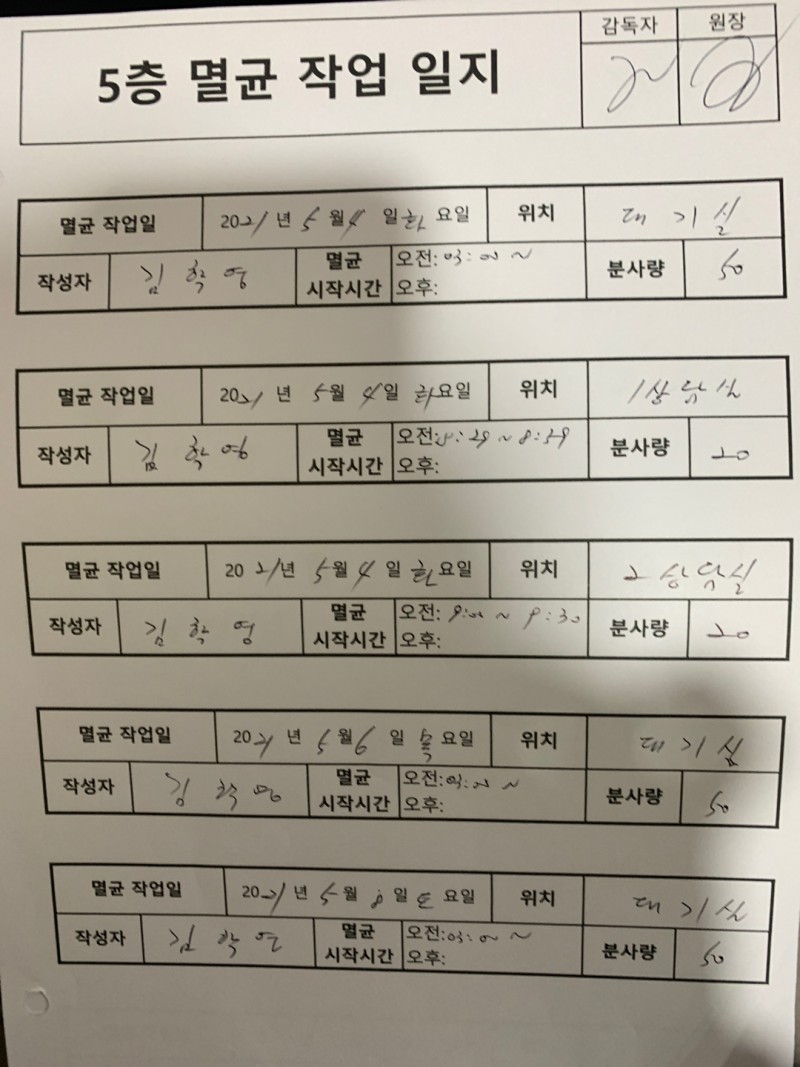 감독자 원장
5층 멸균 작업 일지
멸균 작업일 2021년 5월 4일 화요일 위치 대기실
작성자 김학영 멸균 시작시간 오전: 03:00~ 오후: 분사량 50
멸균 작업일 2021년 5월 4일 화요일 위치 1상담실
작성자 김학영 멸균 시작시간 오전: 8:29~8:39 오후: 분사량 20
멸균 작업일 2021년 5월 4일 화요일 위치 2상담실
작성자 김학영 멸균 시작시간 오전: 9:00~9:30 오후: 분사량 20
멸균 작업일 2021년 5월 6일 목요일 위치 대기실
작성자 김학영 멸균 시작시간 오전: 03:00~ 오후: 분사량 50
멸균 작업일 2021년 5월 8일 토요일 위치 대기실
작성자 김학영 멸균 시작시간 오전: 03:00~ 오후: 분사량 50